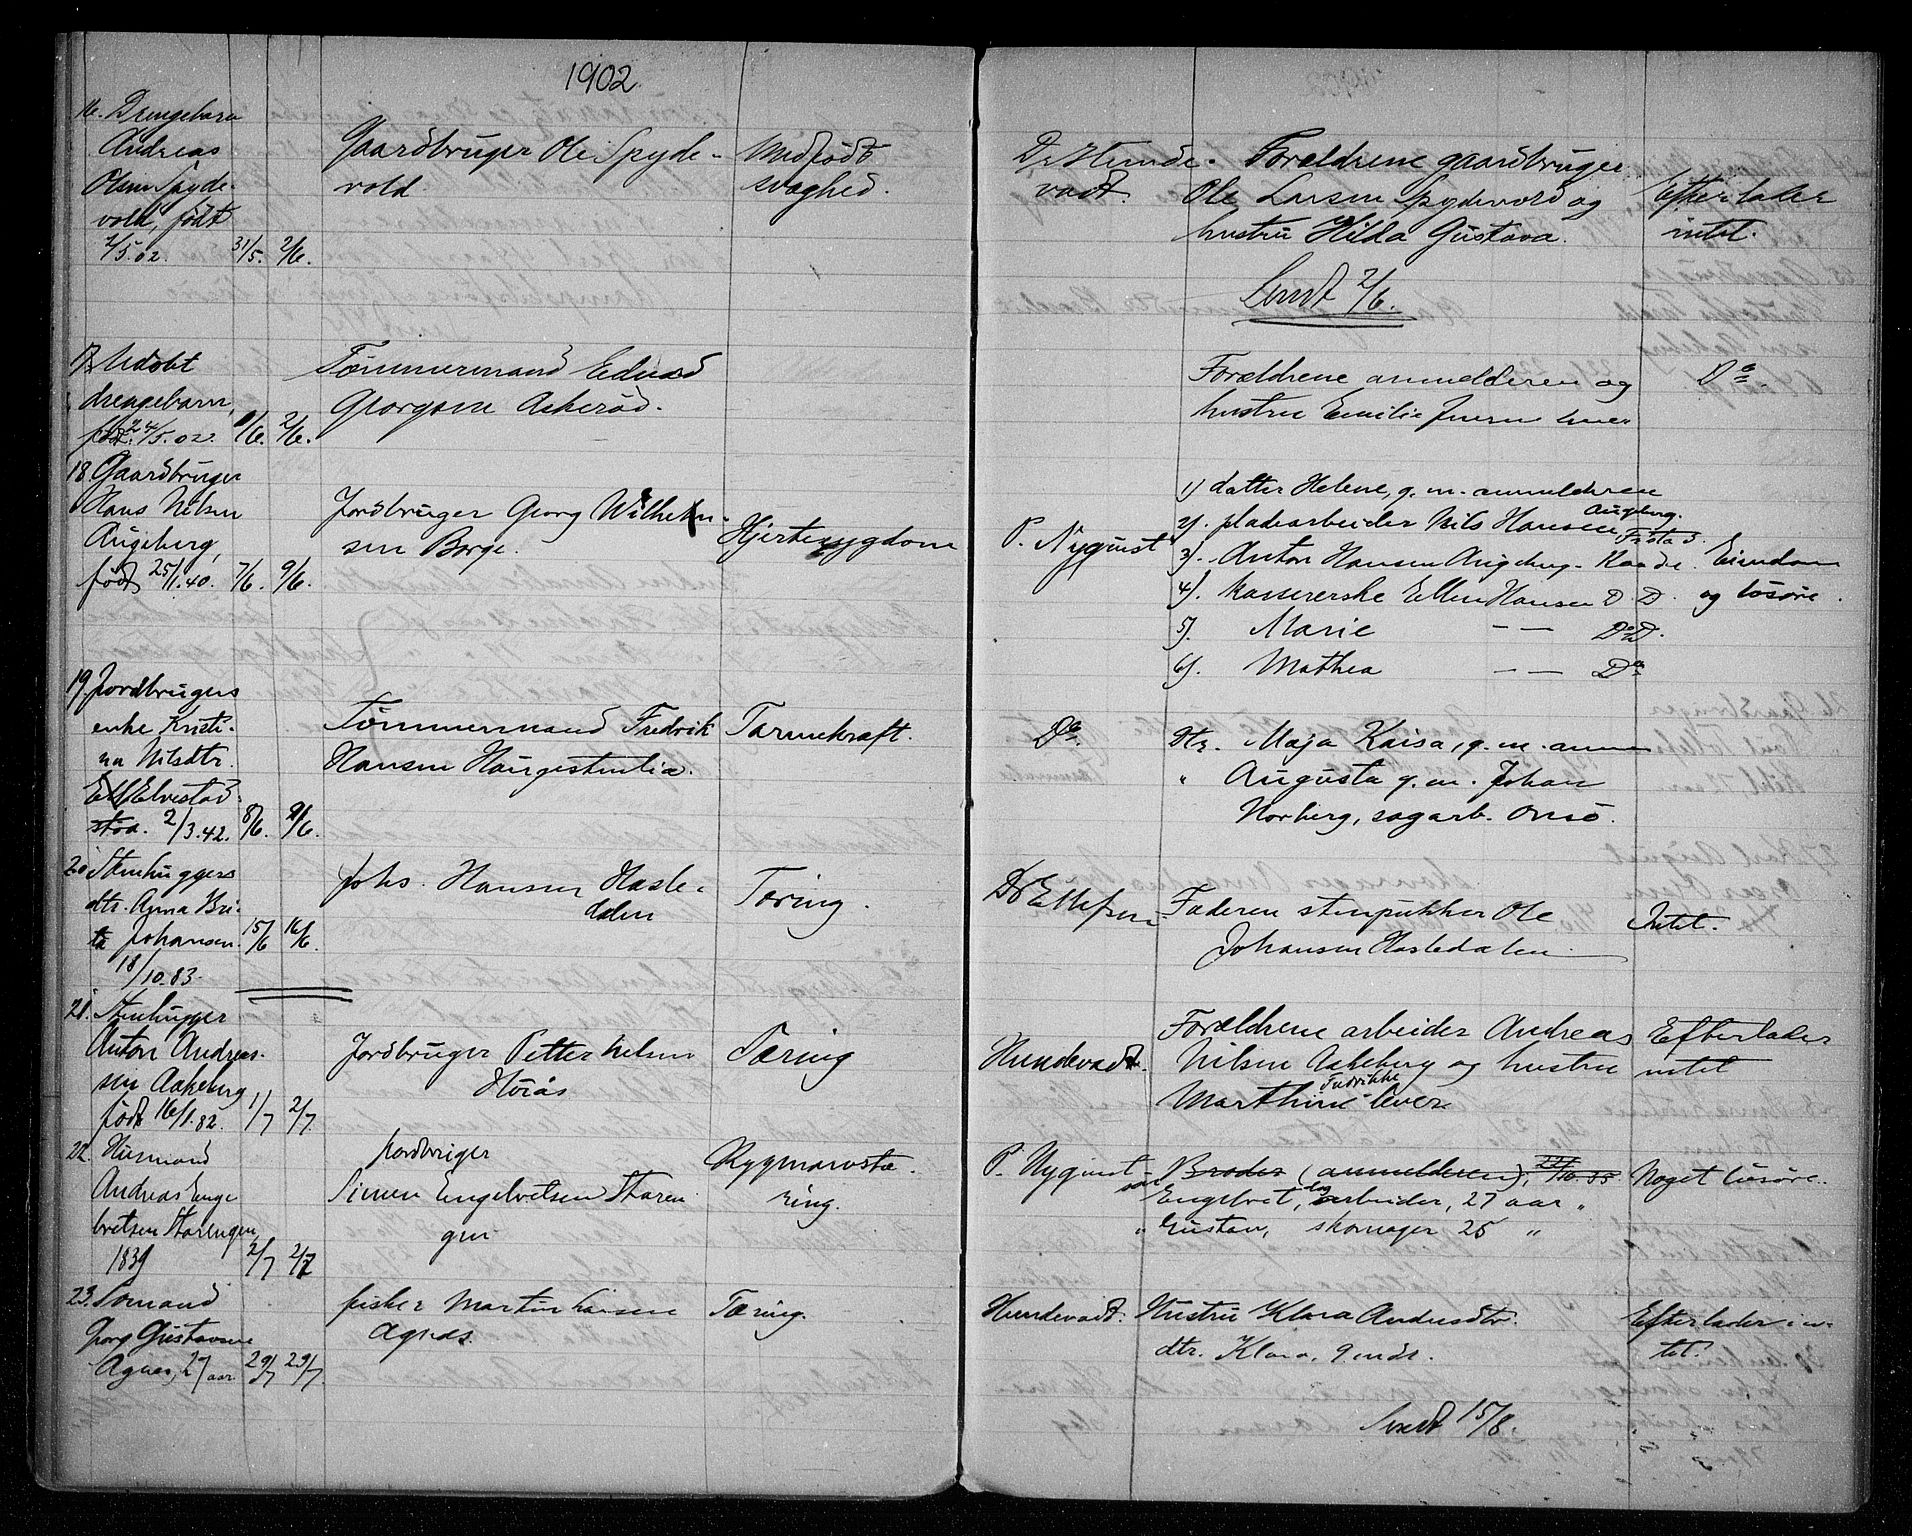 1902
16. Drengebarn
Andreas
Olsen Spyde-
vold, født
2/5.02. 31/5. 2/6.
Gaardbruger Ole Spyde-
vold.
Medfødt
svaghed.
Dr Hunde-
vadt.
Forældrene gaardbruger
Ole Larsen Spydevold og
hustru Hilda Gustava.
Efterlader
intet.
Sendt 2/6.
17. Udøbt
drengebarn,
født 24/5.02. 1/6. 2/6.
Tømmermand Edvard
Georgsen Askerød.
Forældrene anmelderen og
hustru Emilie
Do
18. Gaardbruger
Hans Nilsen
Augeberg,
født 25/1.40. 7/6. 9/6.
Jordbruger Georg Wilhelm-
sen Borge.
Hjertesygdom
P. Nyquist
1) datter Helene, g. m. anmelderen
2). pladearbeider Nils Hansen Augeberg. F.stad.
3). Anton Hansen Augeberg - Raade.
4). kassererske Ellen Hansen D. D.
5). Marie — — Do D.
6). Mathea — — Do
Eiendom
og løsøre.
19. Jordbrugers
enke Kristi-
na Nilsdtr.
Elvestad
stad. 2/3.42. 8/6. 9/6.
Tømmermand Fredrik
Hansen Haugestenlia.
Tarmekræft.
Do.
Dtr. Maja Kaisa, g. m. anm
" Augusta g. m. Johan
Norberg, sagarb. Onsø.
20 Stenhuggers
dtr. Anna Bri-
ta Johansen. 15/6 16/6.
18/10.83.
Johs. Hansen Hasle-
dalen
Tæring.
Dr Ellefsen
Faderen stenpukker Ole
Johansen Hasledalen
Intet.
21. Stenhugger
Anton Andreas-
sen Aakeberg
født 16/1.82. 1/7 2/7.
Jordbruger Petter Nilsen
Höiås
Tæring
Hundevadt.
Forældrene arbeider Andreas
Nilsen Aakeberg og hustru
Marthine Fredrikke lever
Efterlader
intet
22. Husmand
Andreas Enge
bretsen Starengen,
1839 2/7 2/7
jordbruger
Simen Engebretsen Staren
gen
Rygmarvstæ-
ring.
P. Nyquist
Broder (anmelderen), 22/10.35
søn Engebret, arbeider, 27 aar
" Gustav, skomager 25 "
Noget løsøre.
23. Sømand
Georg Gustavsen
Agnes, 27 aar 29/7 29/7.
fisker Martin Larsen
Agnes.
Tæring.
Hundevadt.
Hustru Klara Andersdtr.
dtr. Klara, 9 mdr.
Efterlader in-
tet.
Sendt 15/8.